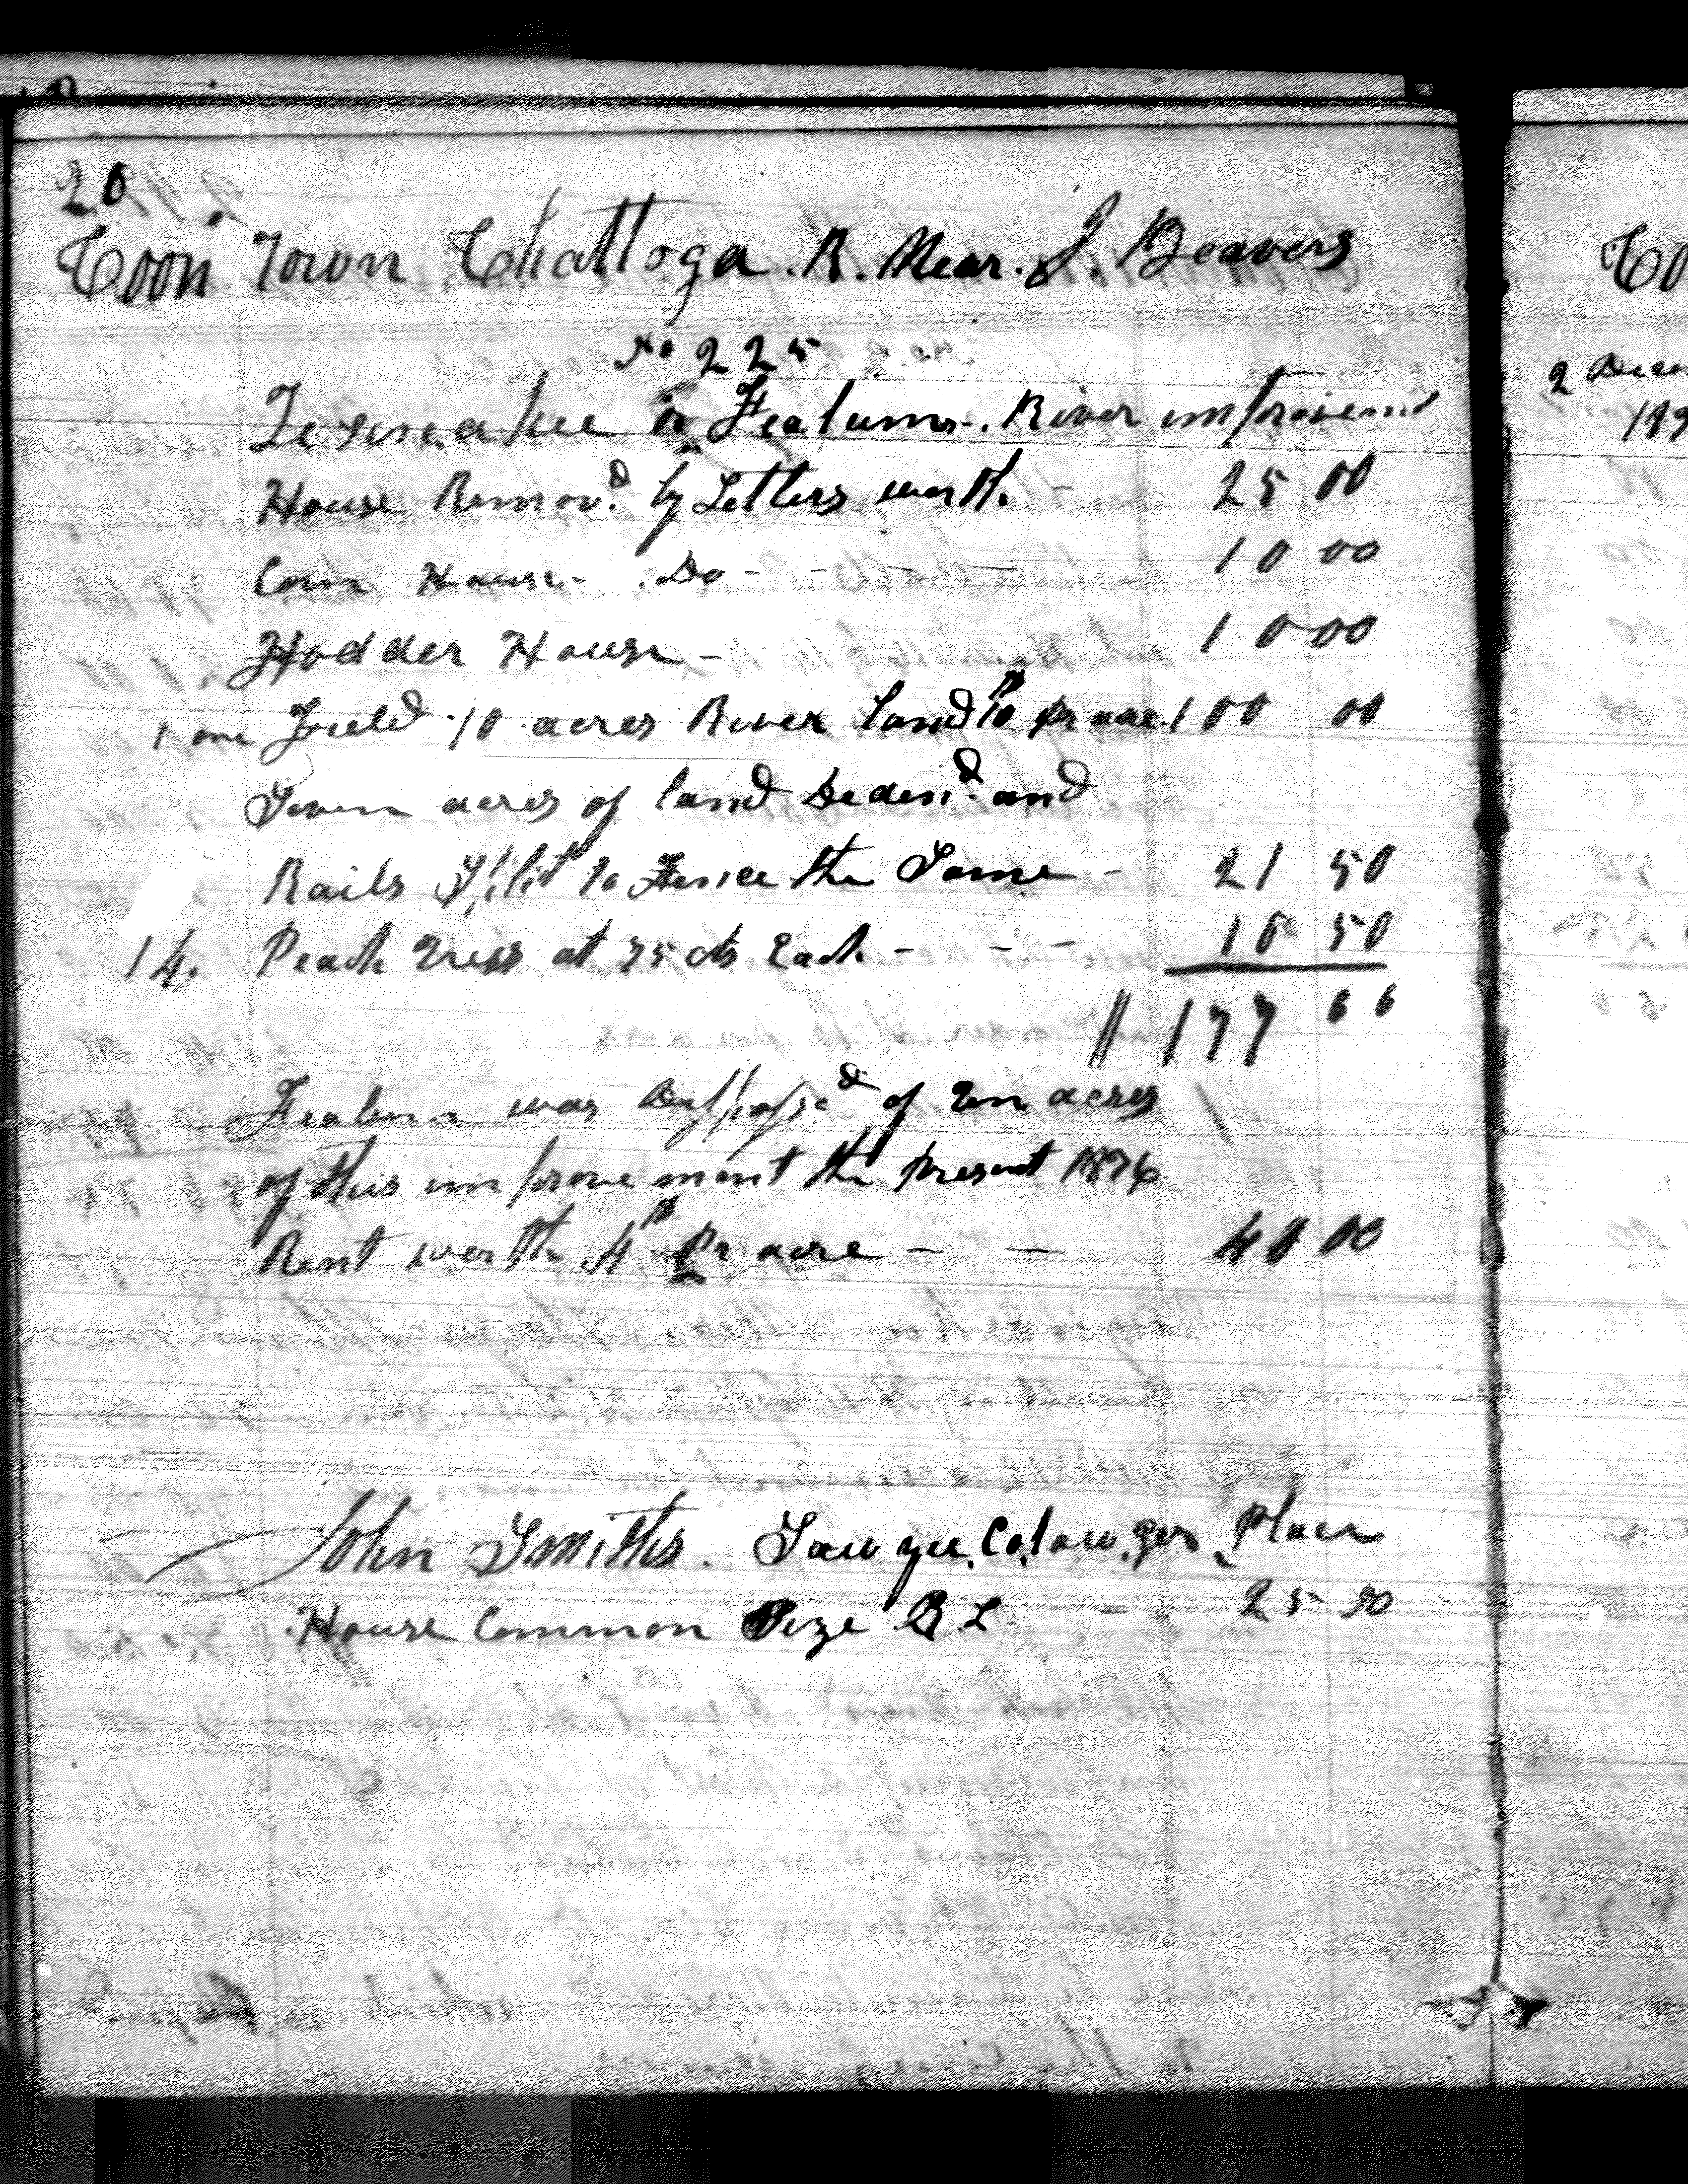 20
Coon Town Chattoga R. Near J. Beavers
No 225
or Featurns River improvemt
House Remov.d by Settlers worth - 25 00
Corn House - Do - - - - 10 00
Fodder House - 10 00
1 one Field 10 acres River land 10$ pr acre 100 00
Seven acres of land Deden.d and
Rails Split to Fence the Same - 21 50
14. Peach Trees at 75 cts Each - - - 10 50
// 177 00
was Disposse.d of Ten acres
of this improvement the present 1836
Rent worth 4$ Pr acre - - 40 00
John Smiths. Place
House Common Size R L - - 25 00
Co
2 Dece
183